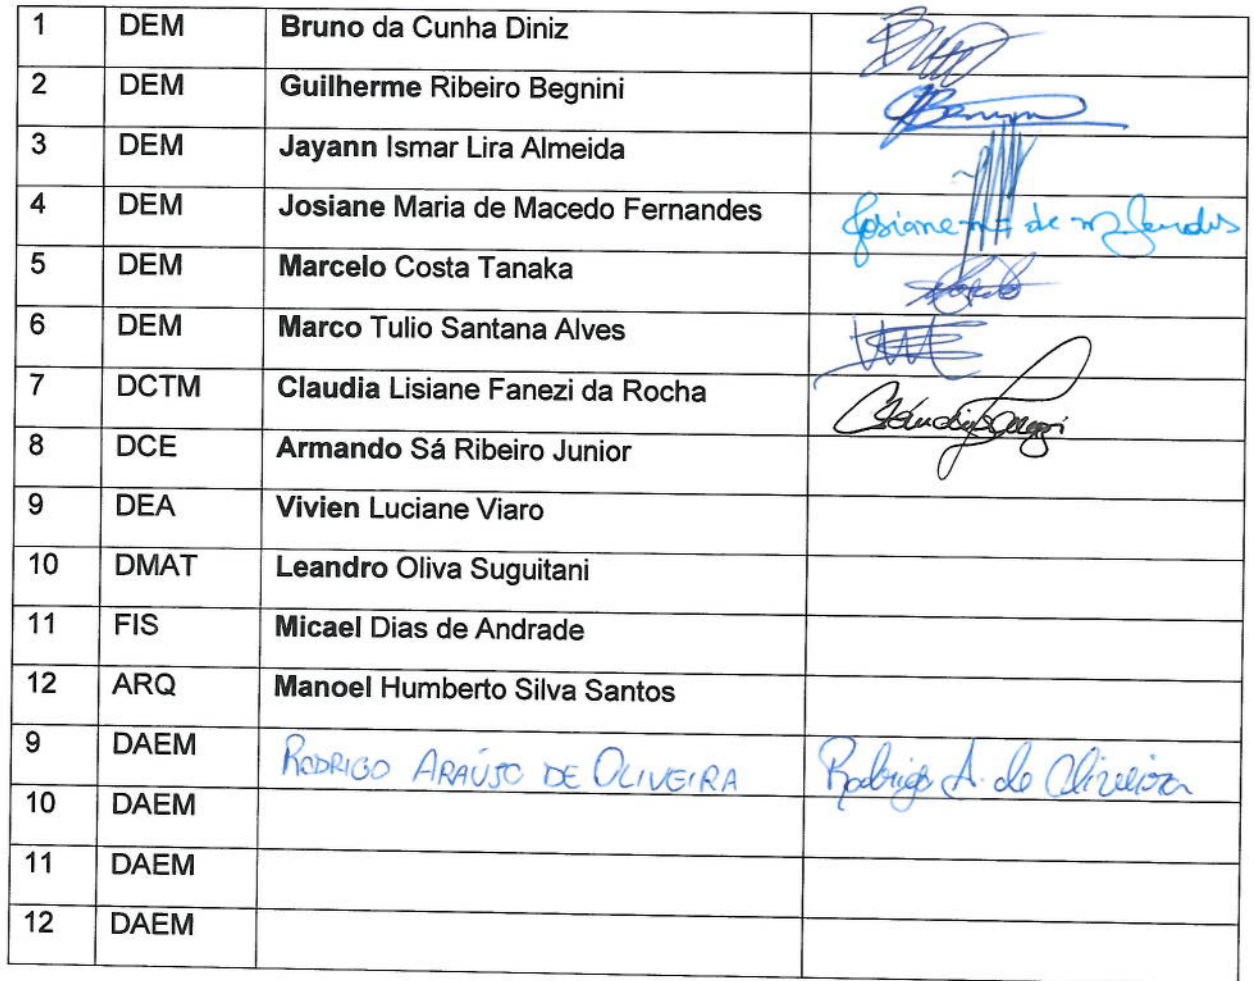 1 DEM Bruno da Cunha Diniz
2 DEM Guilherme Ribeiro Begnini
3 DEM Jayann Ismar Lira Almeida
4 DEM Josiane Maria de Macedo Fernandes
5 DEM Marcelo Costa Tanaka
6 DEM Marco Tulio Santana Alves
7 DCTM Claudia Lisiane Fanezi da Rocha
8 DCE Armando Sá Ribeiro Junior
9 DEA Vivien Luciane Viaro
10 DMAT Leandro Oliva Suguitani
11 FIS Micael Dias de Andrade
12 ARQ Manoel Humberto Silva Santos
9 DAEM RODRIGO ARAÚJO DE OLIVEIRA Rodrigo A. de Oliveira
10 DAEM
11 DAEM
12 DAEM